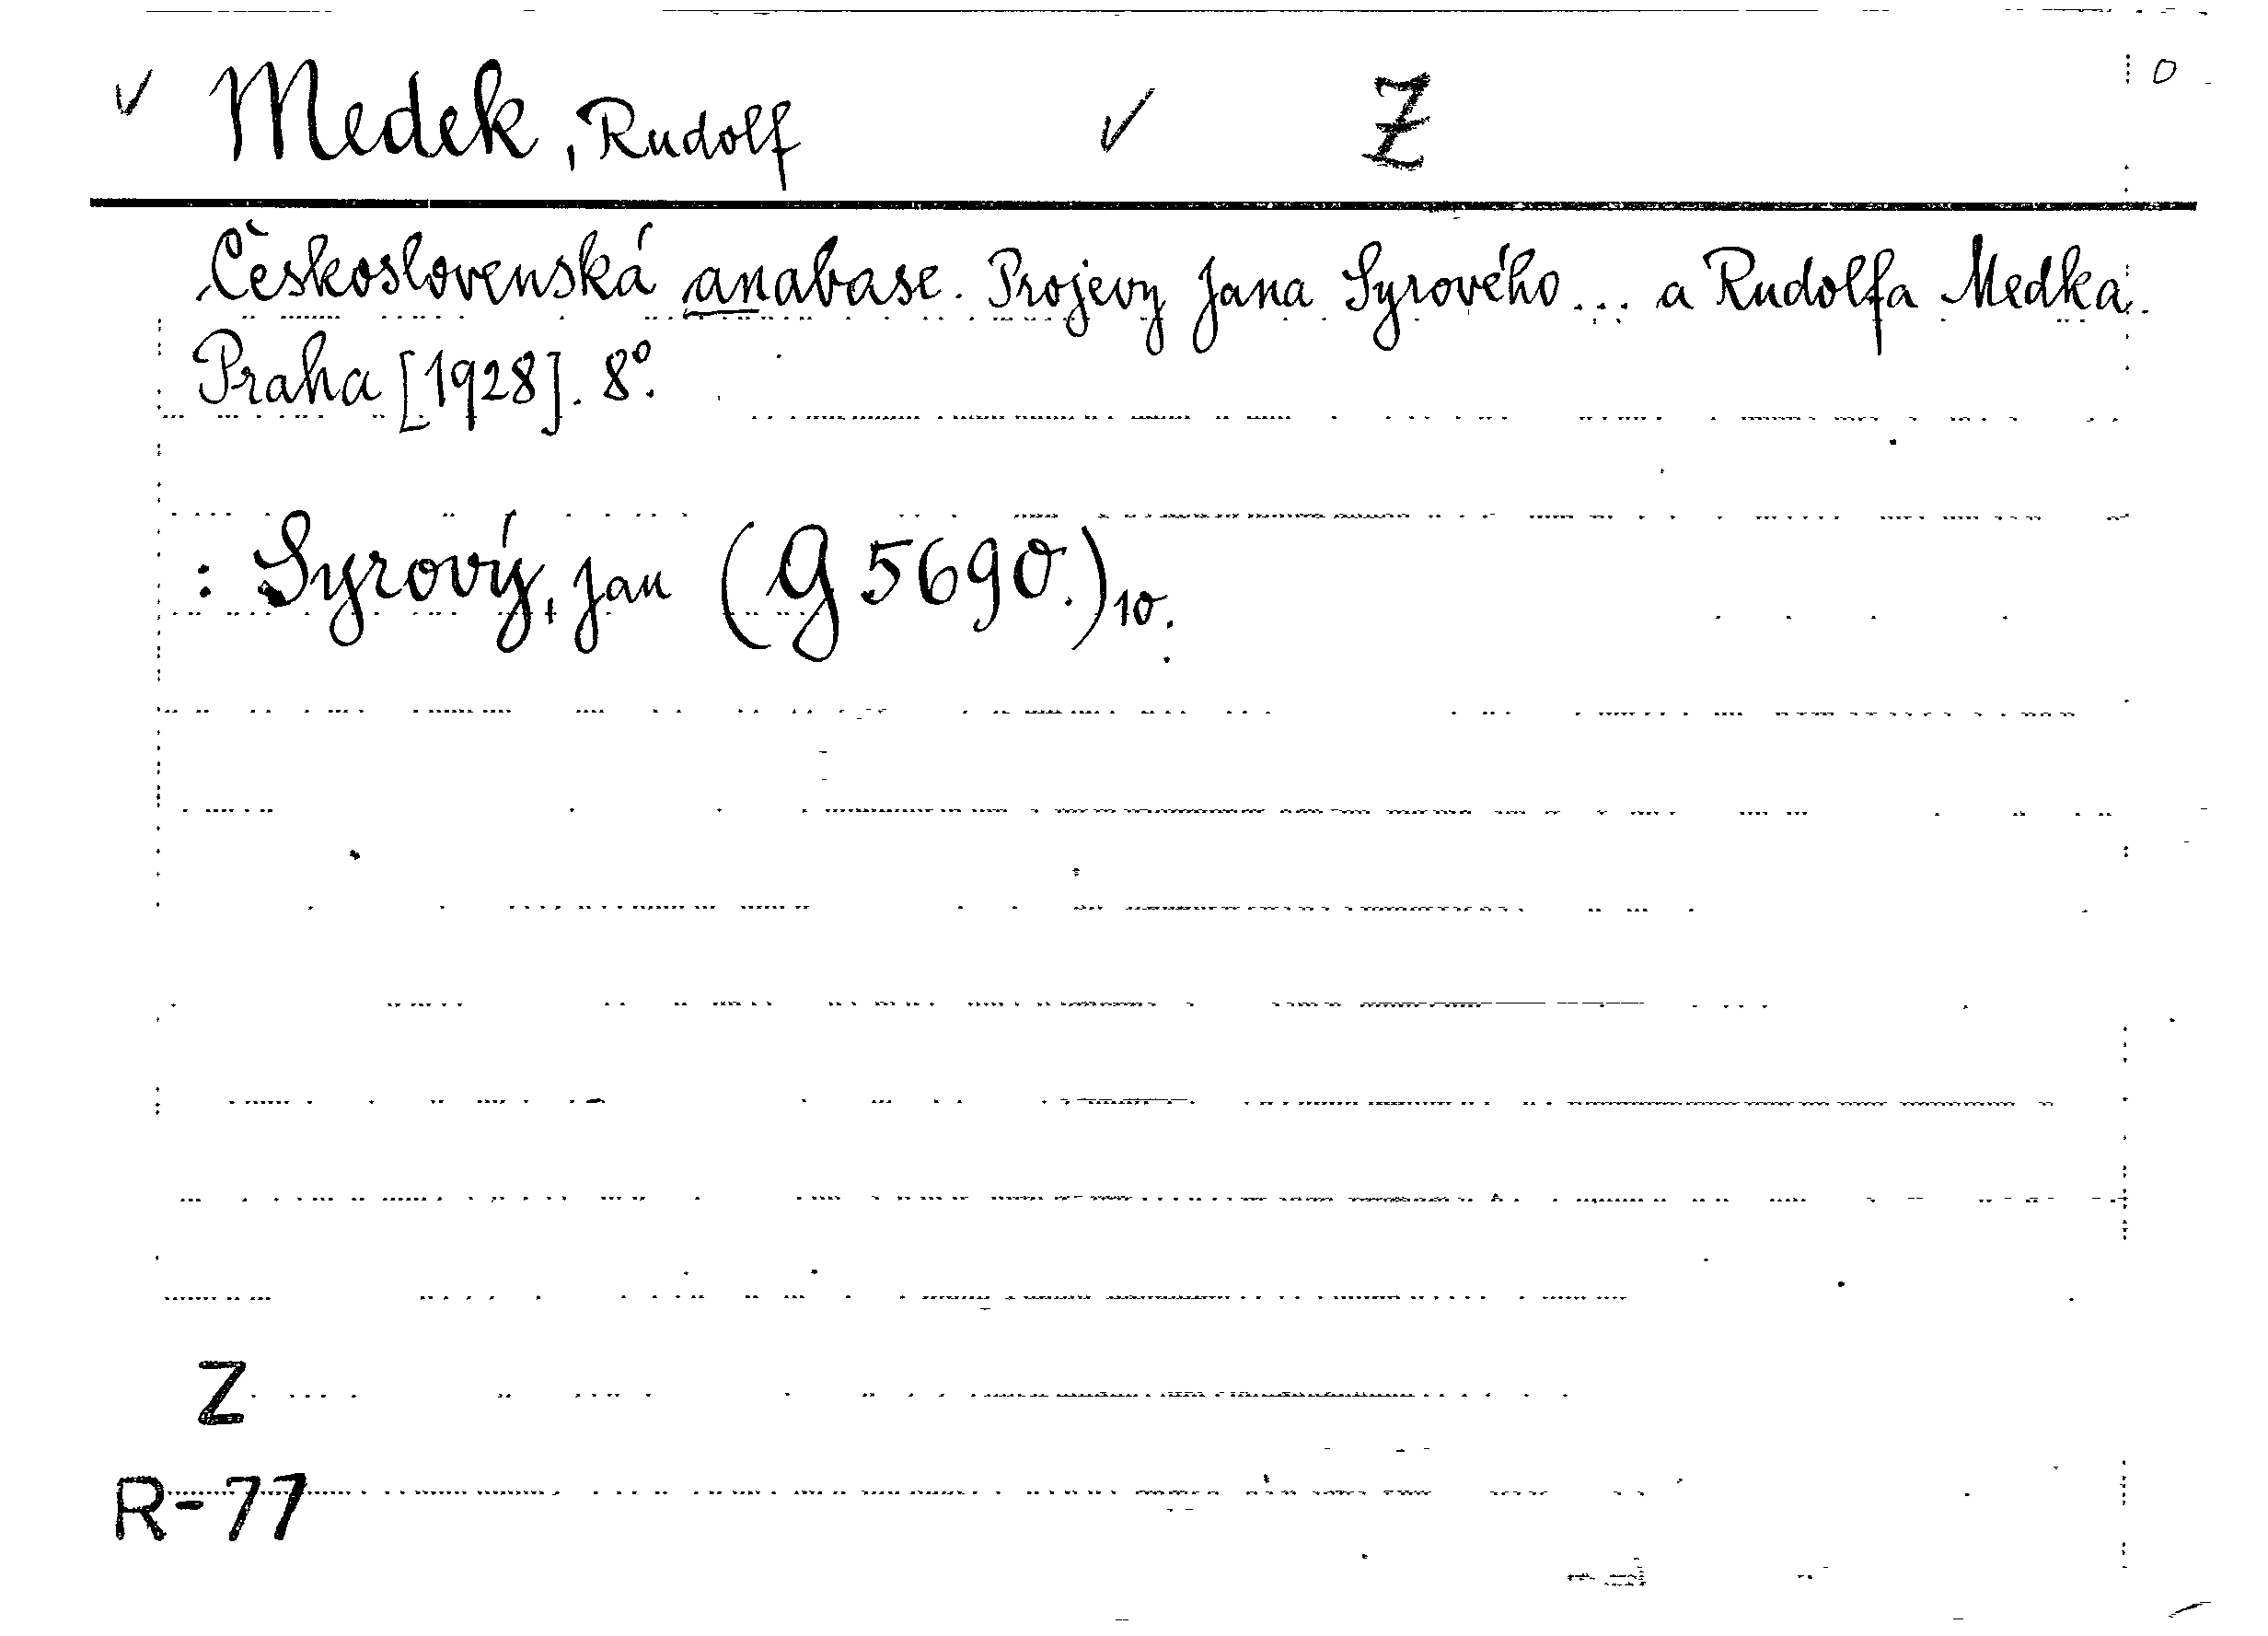 ✓ Medek, Rudolf ✓ Z 0
Československá anabase. Projevy Jana Syrového... a Rudolfa Medka.
Praha [1928]. 8°.
: Syrový, Jan (G 5690.)10.
Z
R-77